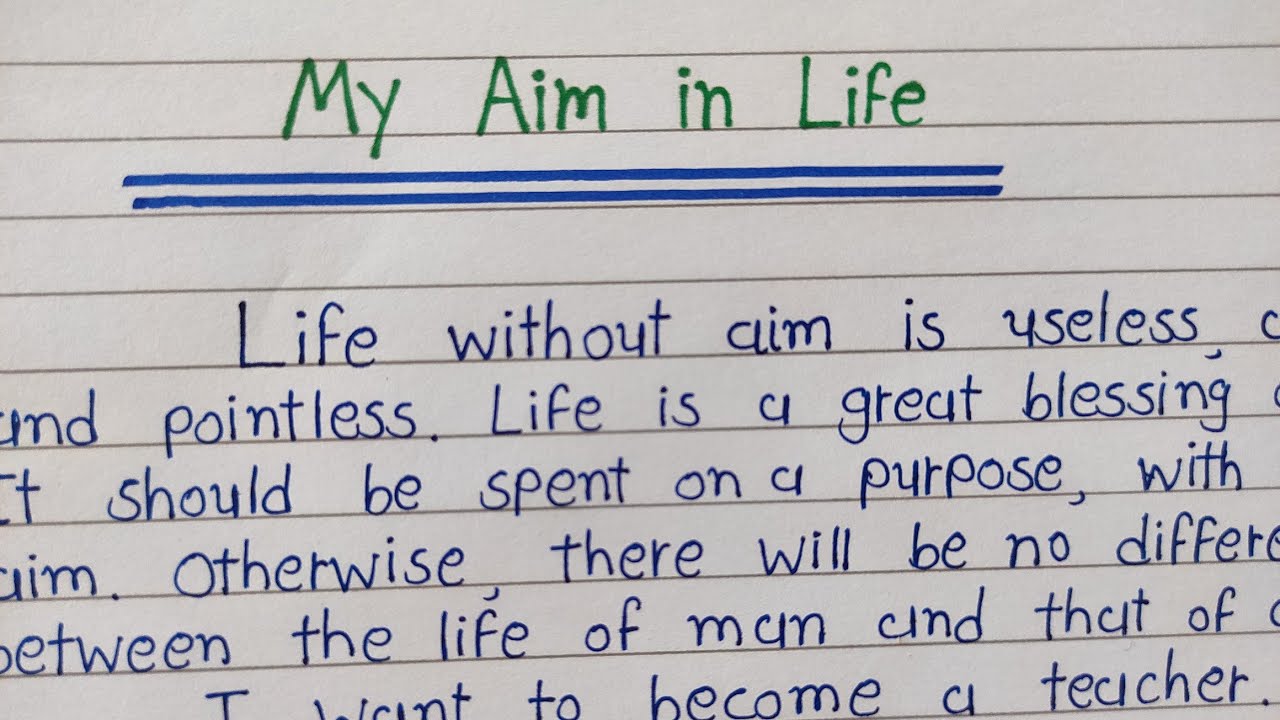 My Aim in Life
Life without aim is useless,
and pointless. Life is a great blessing
It should be spent on a purpose, with
aim. Otherwise, there will be no differe
between the life of man and that of
I want to become a teacher.